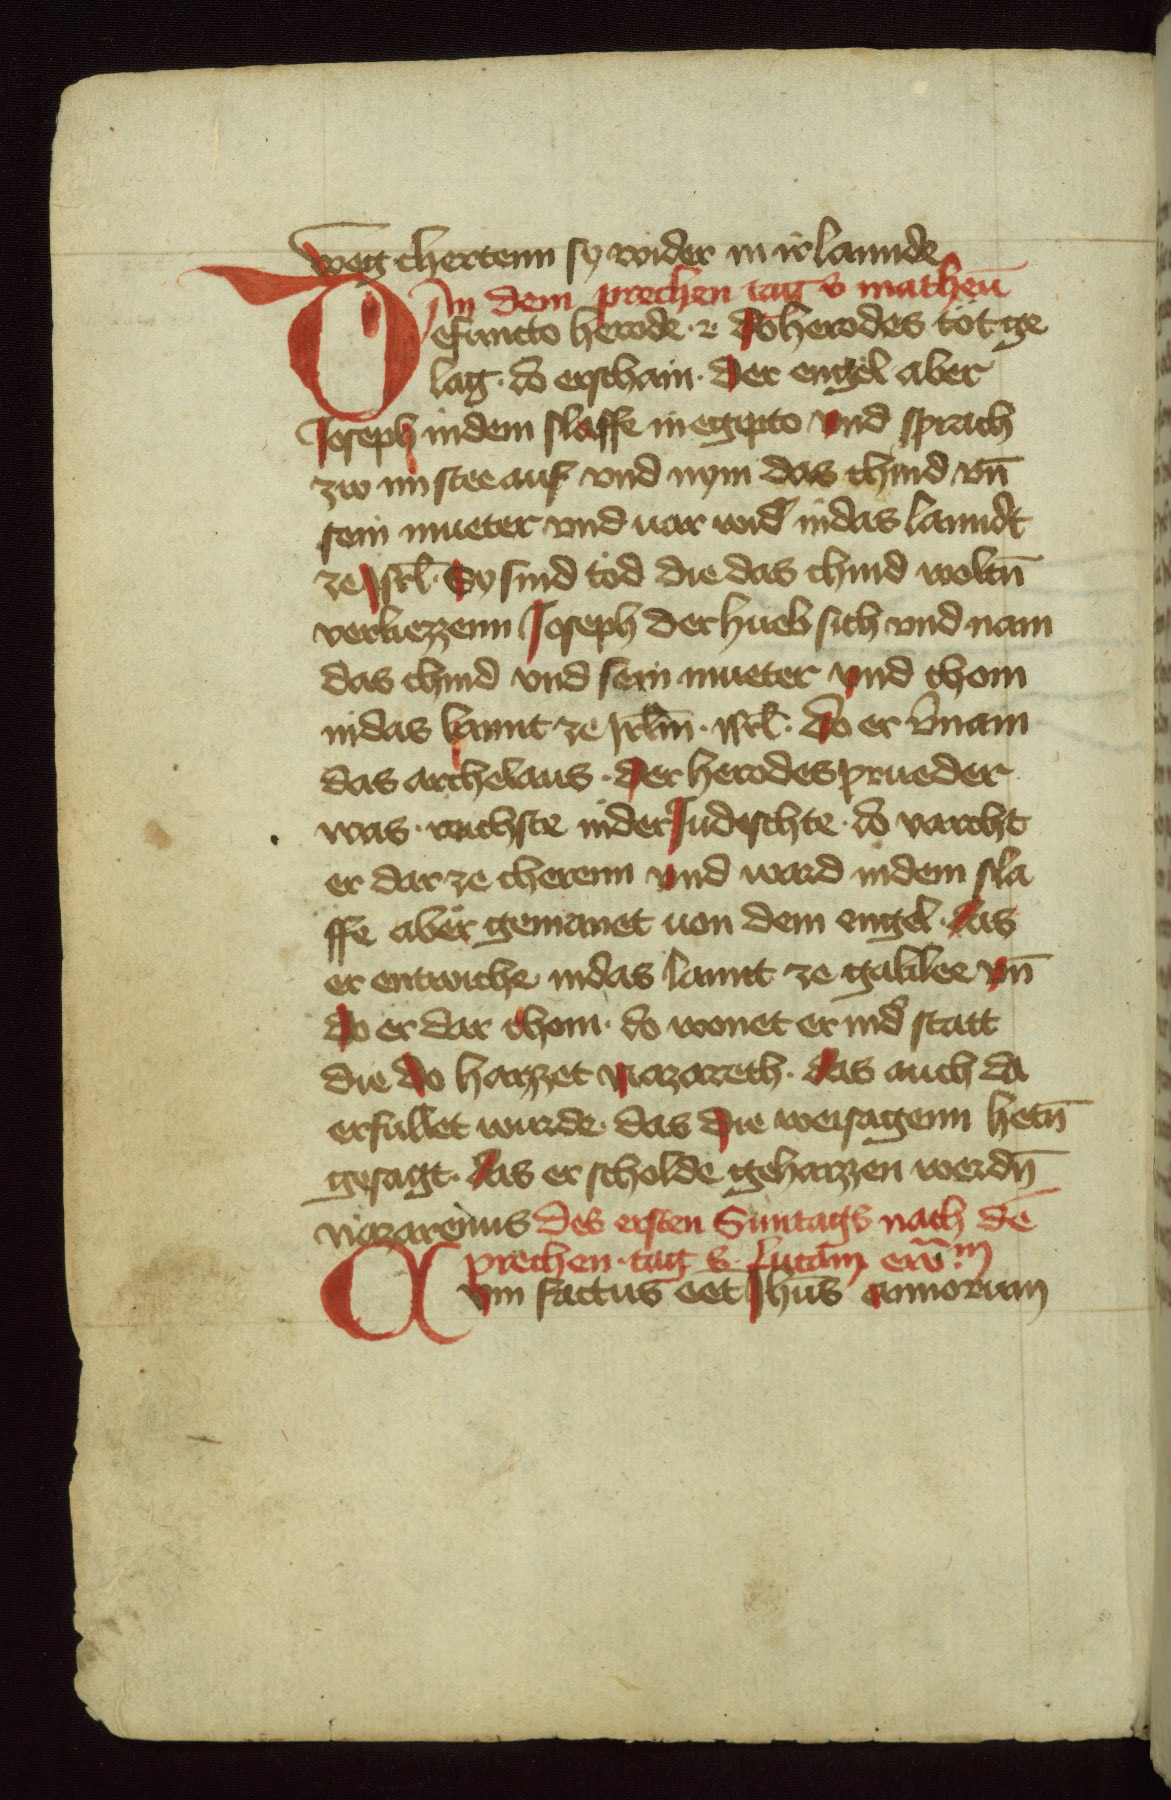 weg chertenn sy wider in ir lannde
An dem prechen tag v̄ matheū
Defuncto herode · ⁊ do herodes tot ge
lag · do erschain · der engel aber
Joseph in dem slaffe in egipto vnd sprach
zw im stee auf vnd nym das chind vn̄
sein mueter vnd var wid' in das lanndt
ze isrl̄ · Sy sind tod die das chind woltn̄
verliezzenn Joseph der hueb sich vnd nam
das chind vnd sein mueter vnd chom
in das lannt ze irl̄m̄ · isrl̄ · do er v̄nam
das archelaus · der herodes prueder
was · reichste in der Judischte · do vorcht
er dar ze cherenn vnd ward in dem sla
ffe aber gemanet von dem engel · das
er entwiche in das lannt ze galilee vn̄
do er dar chom · do wonet er in d' statt
die do haizzet nazareth · das auch da
erfullet wurde · das die weisagenn hetn̄
gesagt · das er scholde gehaizzen werdn̄
nazarenus des ersten Suntags nach dē
prechen · tag S · lucam ew̄m
Cum factus eēt Jhūs annorum